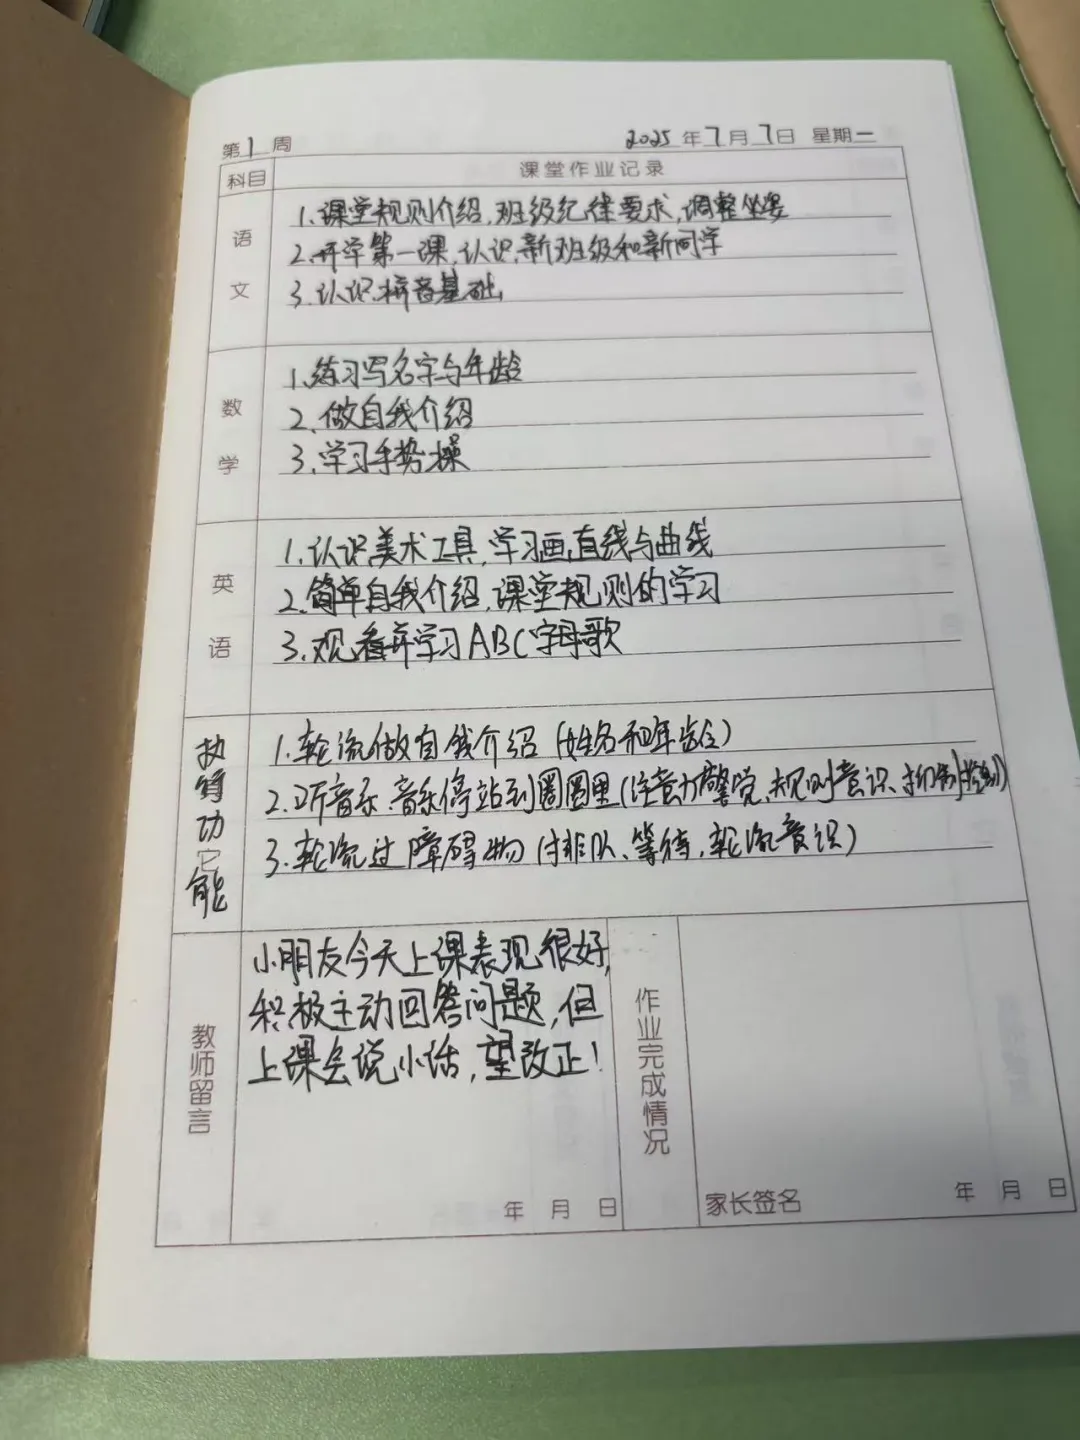 第1周 2025年7月7日 星期一
科目 课堂作业记录
语文
1.课堂规则介绍,班级纪律要求,调整坐姿
2.开学第一课,认识新班级和新同学
3.认识拼音基础
数学
1.练习写名字与年龄
2.做自我介绍
3.学习手势操
英语
1.认识美术工具,学习画直线与曲线
2.简单自我介绍,课堂规则的学习
3.观看并学习ABC字母歌
执行功能
1.轮流做自我介绍(姓名和年龄)
2.听音乐,音乐停站到圈圈里(注意力警觉、规则意识、抑制控制)
3.轮流过障碍物(排队、等待,轮流意识)
教师留言
小朋友今天上课表现很好,
积极主动回答问题,但
上课会说小话,望改正!
年 月 日
作业完成情况
家长签名 年 月 日